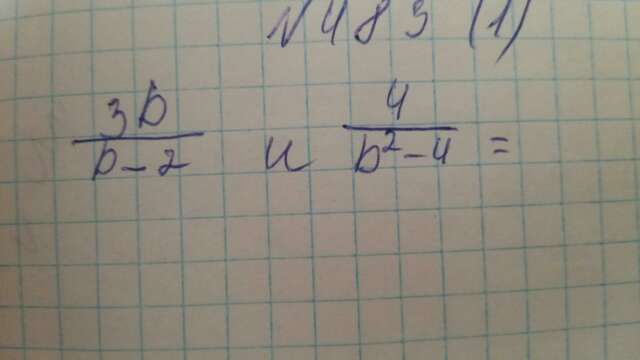 №483 (1)
3b/(b-2) и 4/(b²-4) =